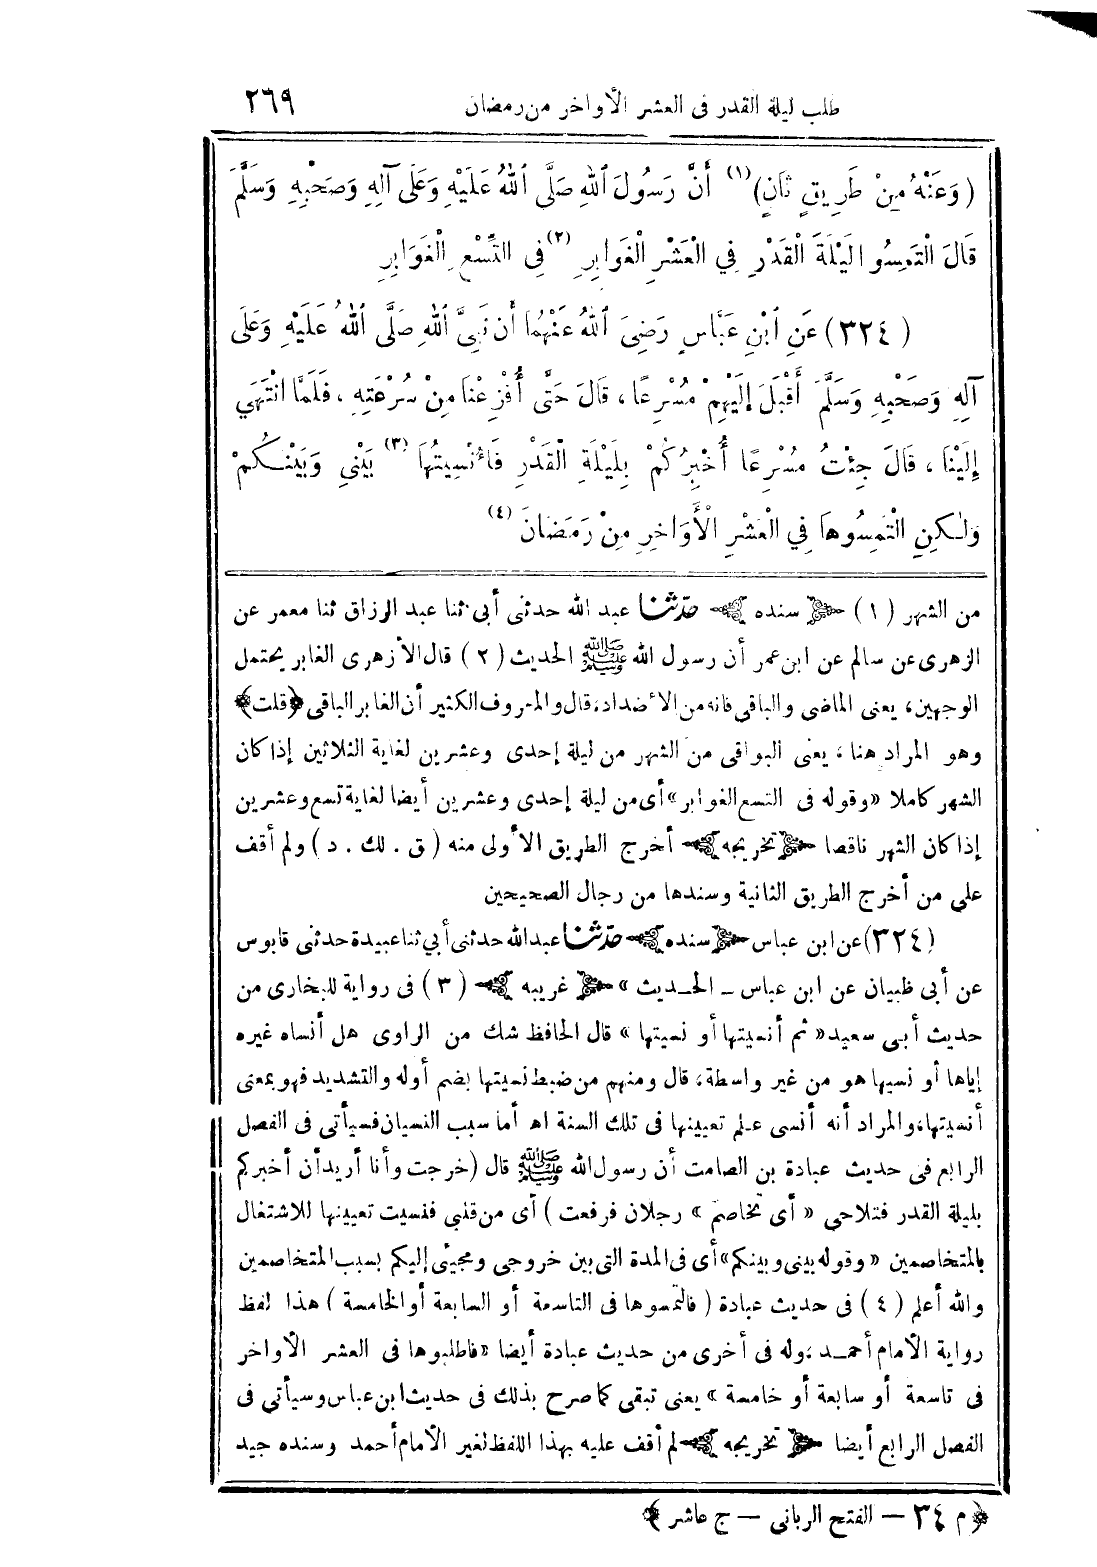 طلب ليلة القدر فى العشر الأواخر من رمضان ٢٦٩
(وَعَنْهُ مِنْ طَرِيقٍ ثَانٍ)(١) أَنَّ رَسُولَ اللهِ صَلَّى اللهُ عَلَيْهِ وَعَلَى آلِهِ وَصَحْبِهِ وَسَلَّمَ
قَالَ الْتَمِسُوا لَيْلَةَ الْقَدْرِ فِي الْعَشْرِ الْغَوَابِرِ (٢) فِى التِّسْعِ الْغَوَابِرِ
(٣٢٤) عَنِ ابْنِ عَبَّاسٍ رَضِىَ اللهُ عَنْهُمَا أَن نَبِىَّ اللهِ صَلَّى اللهُ عَلَيْهِ وَعَلَى
آلِهِ وَصَحْبِهِ وَسَلَّمَ أَقْبَلَ إِلَيْهِمْ مُسْرِعًا، قَالَ حَتَّى أُفْزِعْنَا مِنْ سُرْعَتِهِ، فَلَمَّا انْتَهَى
إِلَيْنَا، قَالَ جِئْتُ مُسْرِعًا أُخْبِرُكُمْ بِلَيْلَةِ الْقَدْرِ فَأُنْسِيتُهَا (٣) بَيْنِى وَبَيْنَكُمْ
وَلٰكِنِ الْتَمِسُوهَا فِي الْعَشْرِ الْأَوَاخِرِ مِنْ رَمَضَانَ (٤)
من الشهر (١) ﴿سنده﴾ حدّثنا عبد الله حدثنى أبى ثنا عبد الرزاق ثنا معمر عن
الزهرى عن سالم عن ابن عمر أن رسول الله ﷺ الحديث (٢) قال الأزهرى الغابر يحتمل
الوجهين، يعنى الماضى والباقى فانه من الأضداد، قال والمعروف الكثير أن الغابر الباقى ﴿قلت﴾
وهو المراد هنا، يعنى البواقى من الشهر من ليلة إحدى وعشرين لغاية الثلاثين إذا كان
الشهر كاملا «وقوله فى التسع الغوابر» أى من ليلة إحدى وعشرين أيضا لغاية تسع وعشرين
إذا كان الشهر ناقصا ﴿تخريجه﴾ أخرج الطريق الأولى منه (ق . لك . د) ولم أقف
على من أخرج الطريق الثانية وسندها من رجال الصحيحين
(٣٢٤) عن ابن عباس ﴿سنده﴾ حدّثنا عبد الله حدثنى أبي ثنا عبيدة حدثنى قابوس
عن أبى ظبيان عن ابن عباس ـ الحـديث » ﴿غريبه﴾ (٣) فى رواية للبخارى من
حديث أبـى سعيد « ثم أنسيتها أو نسيتها » قال الحافظ شك من الراوى هل أنساه غيره
إياها أو نسيها هو من غير واسطة، قال ومنهم من ضبط نسيتها بضم أوله والتشديد فهو بمعنى
أنسيتها، والمراد أنه أنسى علم تعيينها فى تلك السنة اهـ أما سبب النسيان فسيأتى فى الفصل
الرابع فى حديث عبادة بن الصامت أن رسول الله ﷺ قال (خرجت وأنا أريد أن أخبركم
بليلة القدر فتلاحى « أى تخاصم » رجلان فرفعت) أى من قلبى فنسيت تعيينها للاشتغال
بالمتخاصمين «وقوله بينى وبينكم» أى فى المدة التى بين خروجى ومجيئى إليكم بسبب المتخاصمين
والله أعلم (٤) فى حديث عبادة (فالتمسوها فى التاسعة أو السابعة أو الخامسة) هذا لفظ
رواية الأمام أحمـد ،وله فى أخرى من حديث عبادة أيضا «فاطلبوها فى العشر الأواخر
فى تاسعة أو سابعة أو خامسة » يعنى تبقى كما صرح بذلك فى حديث ابن عباس وسيأتى فى
الفصل الرابع أيضا ﴿تخريجه﴾ لم أقف عليه بهذا اللفظ لغير الأمام أحمد وسنده جيد
﴿م ٣٤ — الفتح الربانى — ج عاشر﴾